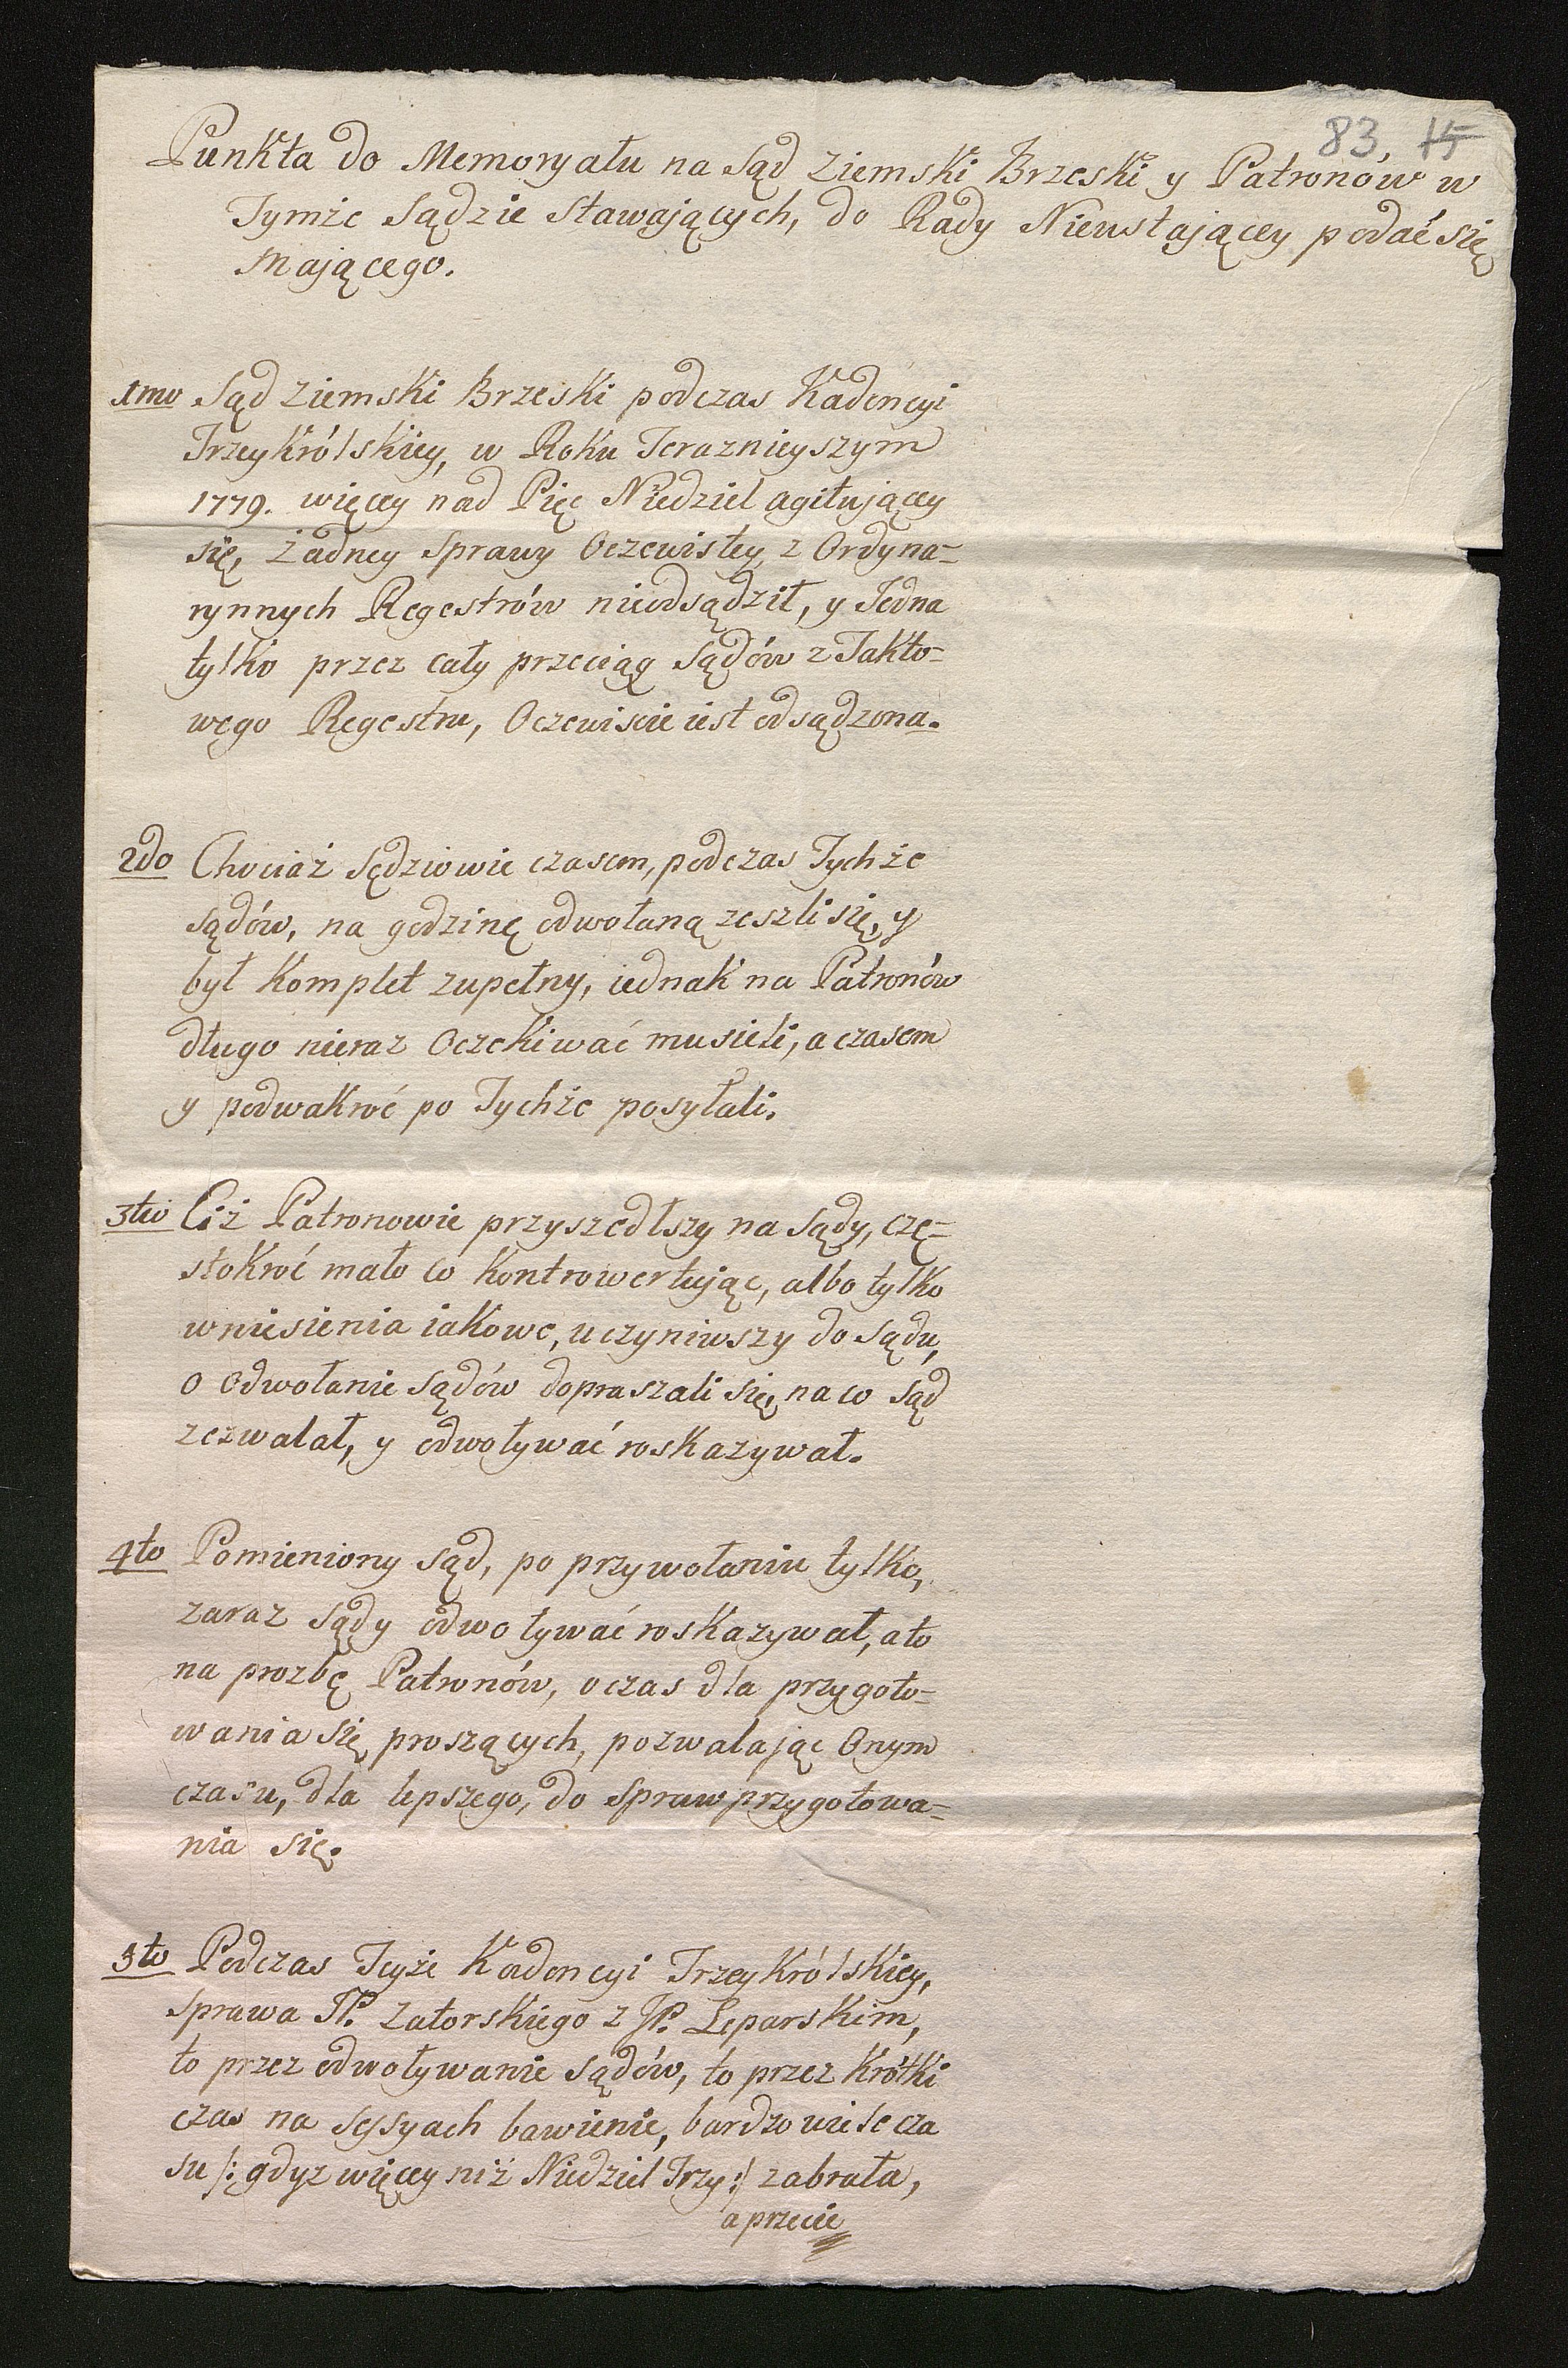 83. 15
Punkta do Memoryału na Sąd Ziemski Brzeski y Patronów w
Tymże Sądzie Stawających, do Rady Nieustaiący podać się
Mającego.
1mo Sąd Ziemski Brzeski podczas Kadencyi
Trzeykrólskiey, w Roku Teraznieyszym
1779. więcey nad Pięc Niedziel agitującey
się, Żadney Sprawy Oczewistey, z Ordyna-
rynnych Regestrów nieodsądził, y Jedna
tylko przez cały przeciąg Sądów z Takto-
wego Regestru, Oczewiscie iest odsądzona.
2do Chociaż Sędziowie czasem, podczas Tychże
Sądów, na godzinę odwołaną zeszli się, y
był Komplet zupełny, iednak na Patronów
długo nieraz Oczekiwać musieli, a czasem
y podwakroć po Tychże posyłali.
3tio Ciż Patronowie przyszedłszy na Sądy, czę-
stokroć mało co Kontrowertując, albo tylko
wniesienia iakowe, uczyniwszy do Sądu,
o Odwołanie Sądów dopraszali się, na co Sąd
zezwalał, y odwoływać roskazywał.
4to Pomieniony Sąd, po przywołaniu tylko,
zaraz Sądy odwoływać roskazywał, a to
na prozbę Patronów, o czas dla przygoto-
wania się proszących, pozwalając Onym
czasu, dla lepszego, do Spraw przygotowa-
nia się.
5to Podczas Teyże Kadencyi Trzeykrólskiey,
Sprawa JP. Zatorskiego z JP. Leparskim,
to przez odwoływanie Sądów, to przez Krótki
czas na Sessyach bawienie, bardzo wiele cza
su /: gdyz więcey niż Niedziel Trzy :/ zabrała,
a przecie